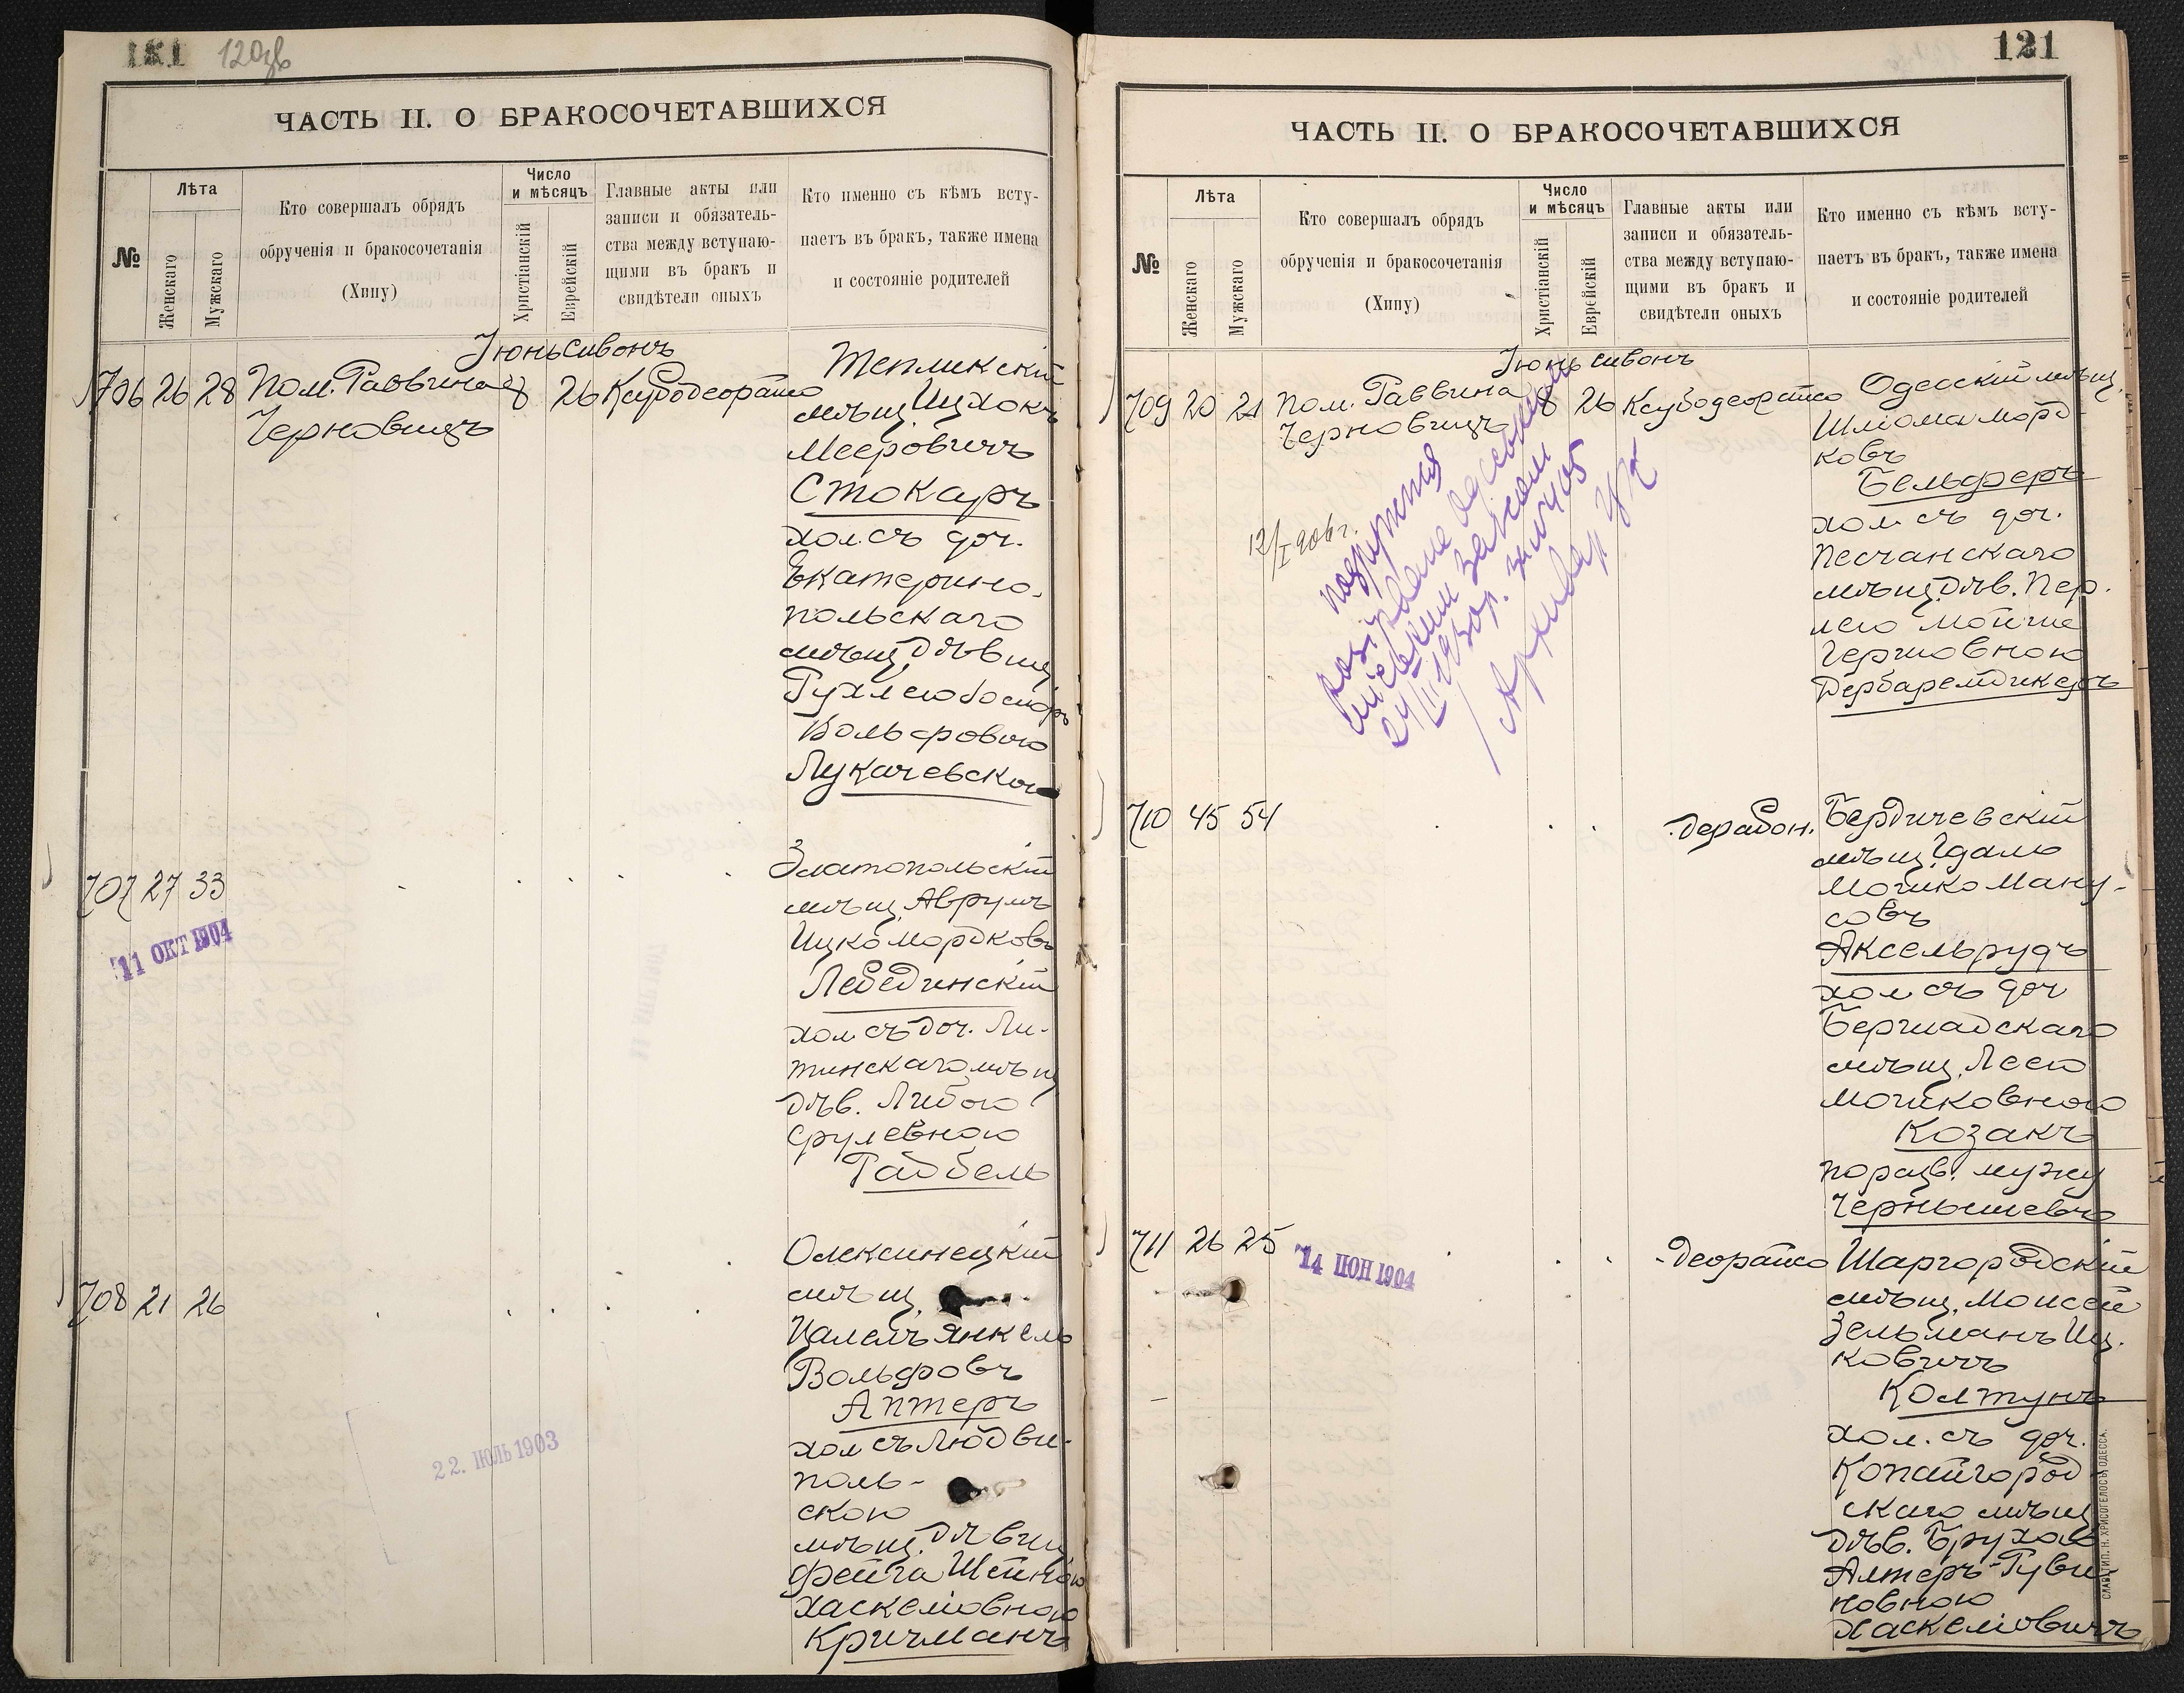 121 120зв
ЧАСТЬ II. О БРАКОСОЧЕТАВШИХСЯ
№
Лѣта
Женскаго
Мужскаго
Кто совершалъ обрядъ
обрученія и бракосочетанія
(Хипу)
Число
и мѣсяцъ
Христіанскій
Еврейскій
Главные акты или
записи и обязатель-
ства между вступаю-
щими въ бракъ и
свидѣтели оныхъ
Кто именно съ кѣмъ всту-
паетъ въ бракъ, также имена
и состояніе родителей
Іюнь Сивонъ
706 26 28 Пом. Раввина 8 26
Черновицъ
Тепликскій
мѣщ. Ицхокъ
Мееровичъ
Стокаръ
хол. съ доч.
Екатерино-
польскаго
мѣщ. Дѣвиц
Вольфовою
Лукачевскою
707 27 33
11 ОКТ 1904
Златопольскій
мѣщ. Аврумъ
Ицко Мордковъ
Лебединскій
хол. съ доч. Ли-
тинскаго мѣщ
дѣв. Либою
Срулевною
Гадбель
708 21 26
22. ІЮЛЬ 1903
Олексинецкій
мѣщ.
Цалелъ Янкель
Вольфовъ
Аптеръ
хол съ Людви-
поль-
скою
мѣщ. Дѣвиц
Фейга Шейною
Хаскеліовною
Кричманъ
121
ЧАСТЬ II. О БРАКОСОЧЕТАВШИХСЯ
№
Лѣта
Женскаго
Мужскаго
Кто совершалъ обрядъ
обрученія и бракосочетанія
(Хипу)
Число
и мѣсяцъ
Христіанскій
Еврейскій
Главные акты или
записи и обязатель-
ства между вступаю-
щими въ бракъ и
свидѣтели оныхъ
Кто именно съ кѣмъ всту-
паетъ въ бракъ, также имена
и состояніе родителей
Іюнь Сивонъ
709 20 21 Пом. Раввина 8 26
Черновицъ
12/I 906 г.
Одесскій мѣщ.
Шліома Морд-
ковъ
Бельферъ
хол. съ доч.
Песчанскаго
мѣщ. Дѣв. Пер-
лею Мойше
Гершовною
Дербаремдикеръ
710 45 54
Бердичевскій
мѣщ. Гдалю
Мошко Ману-
совъ
Аксельрудъ
хол съ доч
Бершадскаго
мѣщ. Леею
Мошковною
Козакъ
по разв. мужу
Чернышевъ
711 26 25
14 ІЮН 1904
Шаргородскій
мѣщ. Моисей
Зельманъ Иц-
ковичъ
Колтунъ
хол. съ доч.
Копайгород-
скаго мѣщ
дѣв. Брухою
Алтеръ-Руви-
новною
Хаскеліовичъ
СЛАВ. ТИП. Н. ХРИСОГЕЛОСЪ, ОДЕССА.